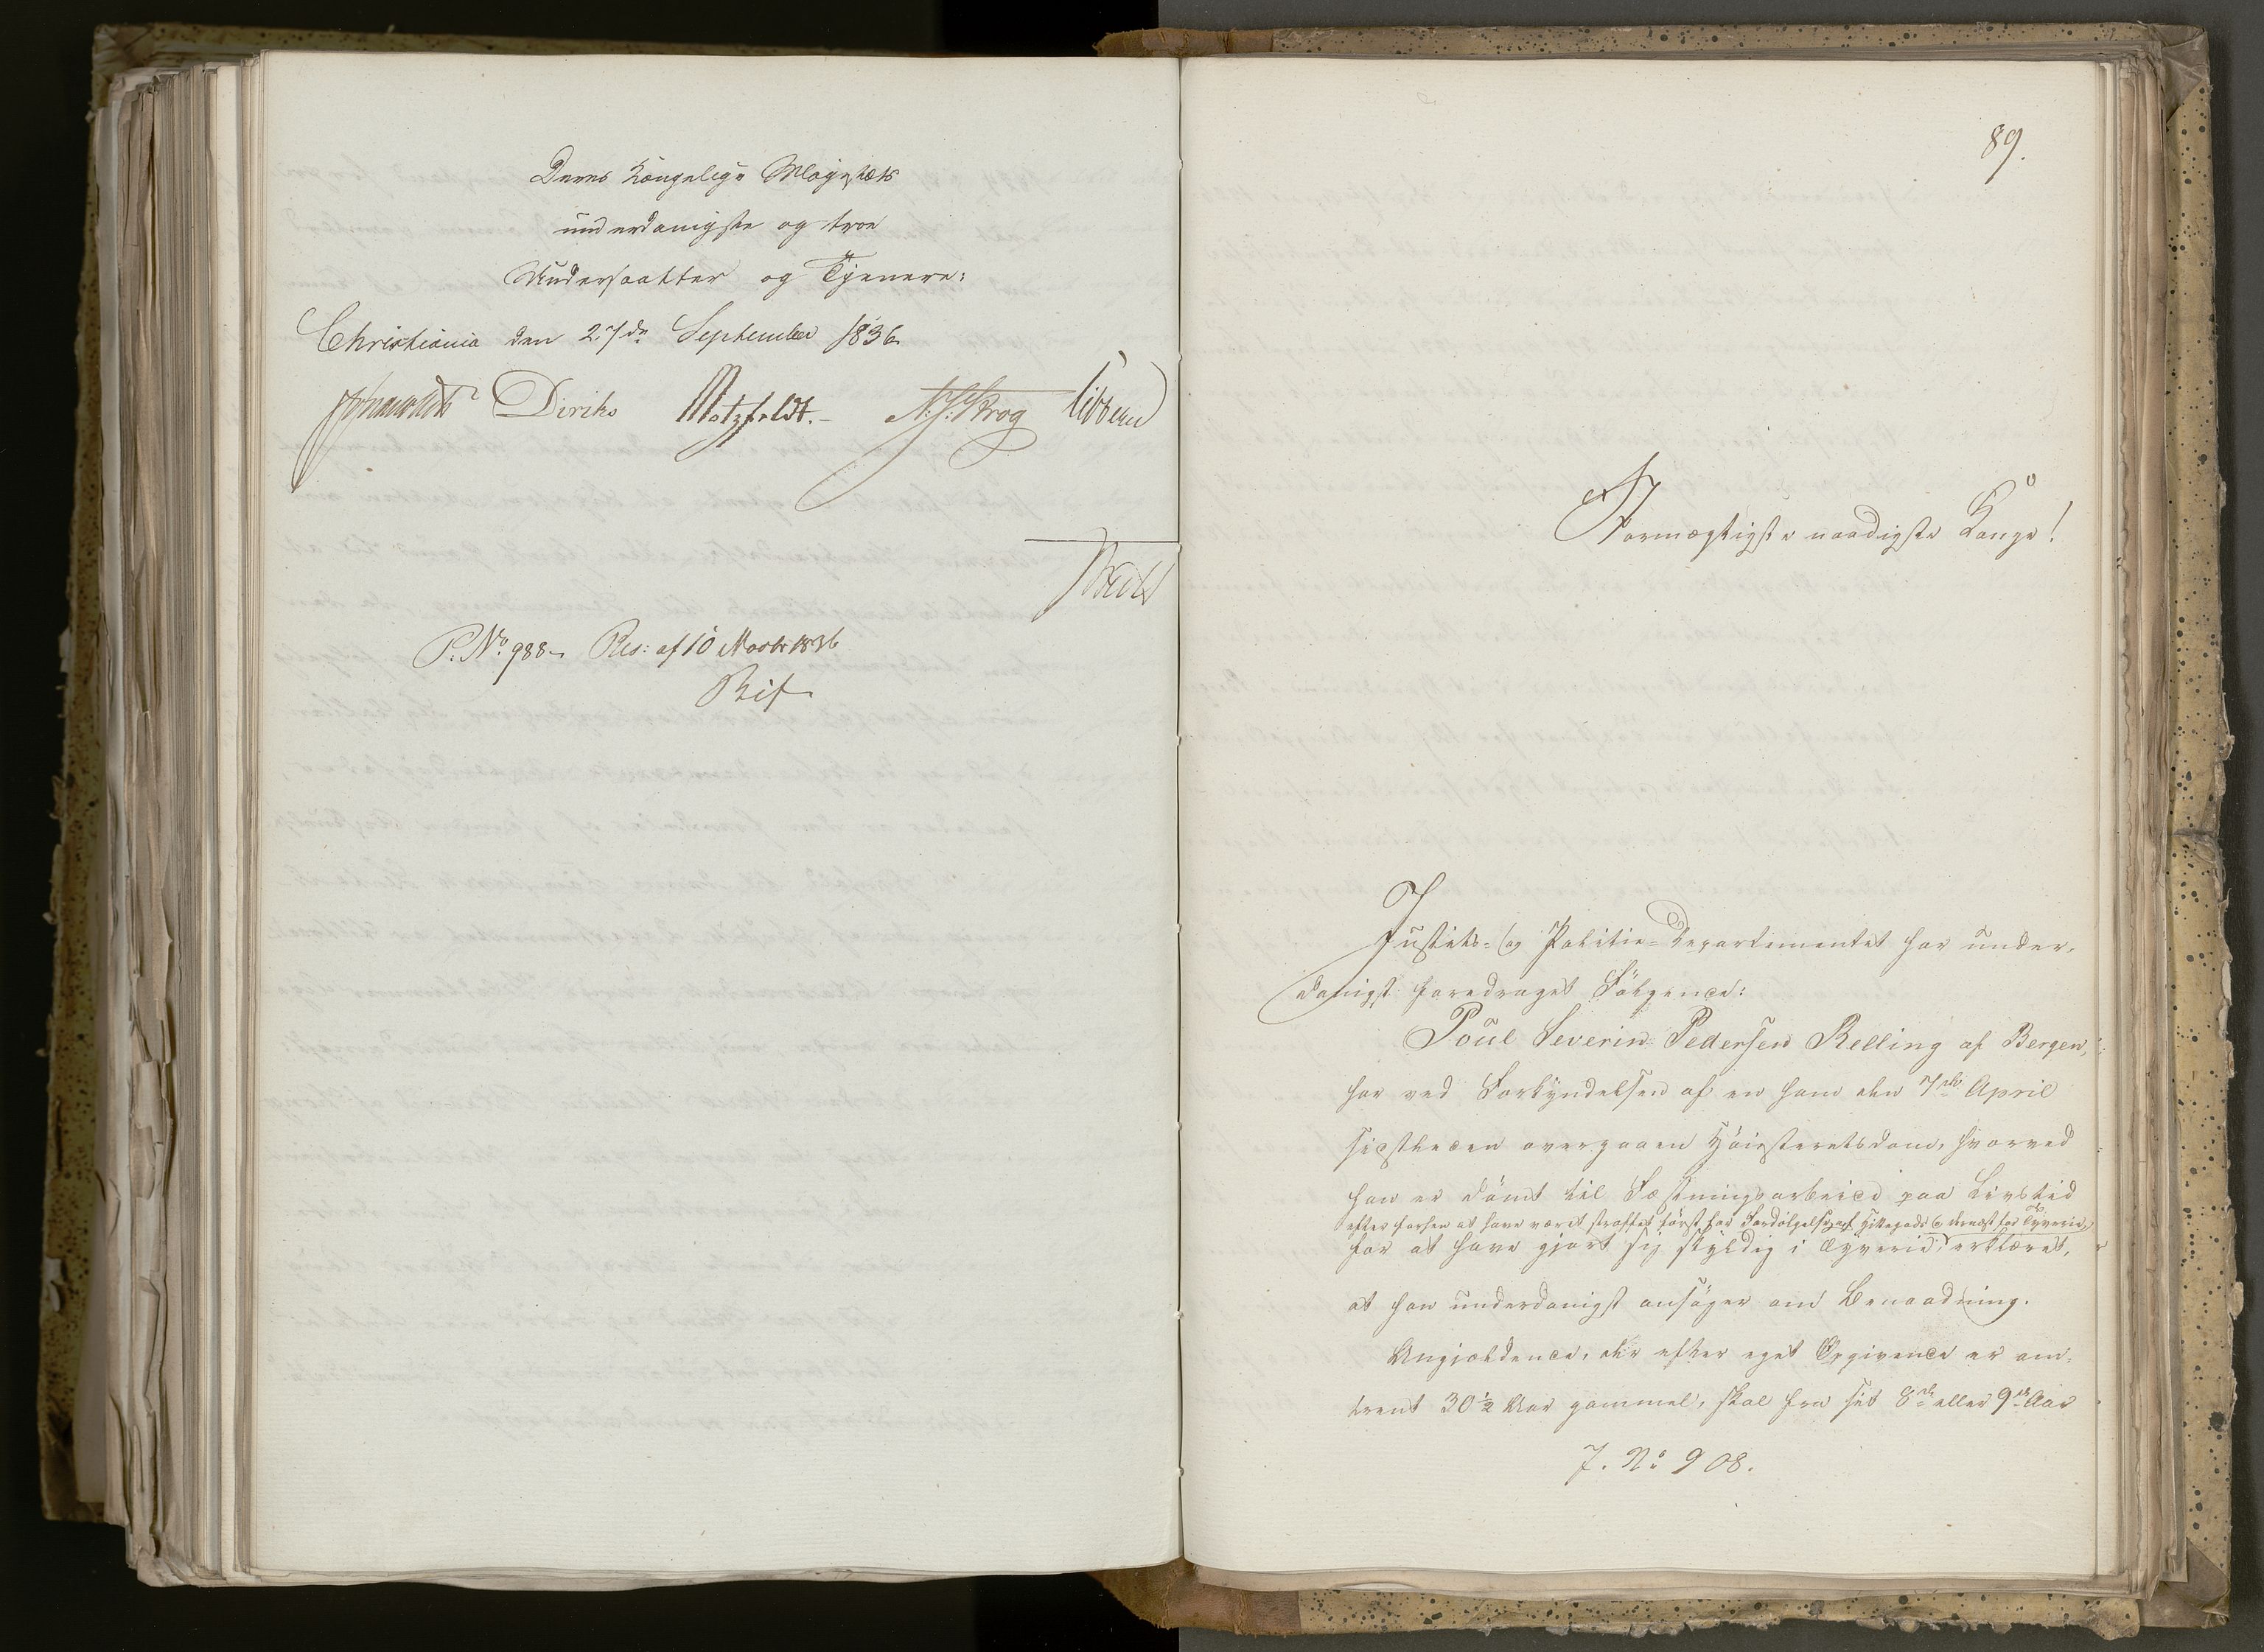 Deres Kongelige Majestæts
underdanigste og troe
Undersaatter og Tjenere:
Christiania den 27de September 1836.
Diriks Motzfeldt. N. J. Krog Sibbern
P. No. 988. Res: af 10 Novbr 1836
89.
Stormægtigste naadigste Konge!
Justits- og Politie-Departementet har under-
danigst foredraget Følgende:
Poul Severin Pedersen Relling af Bergen,
har ved Forkyndelsen af en ham den 7de April
sidstleden overgaaen Høiesteretsdom, hvorved
han er dømt til Fæstningsarbeide paa Livstid
efter forhen at have været straffet først for Fordølgelse af Hittegods og dernæst for Tyverie,
for at have gjort sig skyldig i Tyverie, erklæret,
at han underdanigst ansøger om Benaadning.
Angjældende, der efter eget Opgivende er om-
trent 30½ Aar gammel, skal fra sit 8de eller 9de Aar
J. No 908.